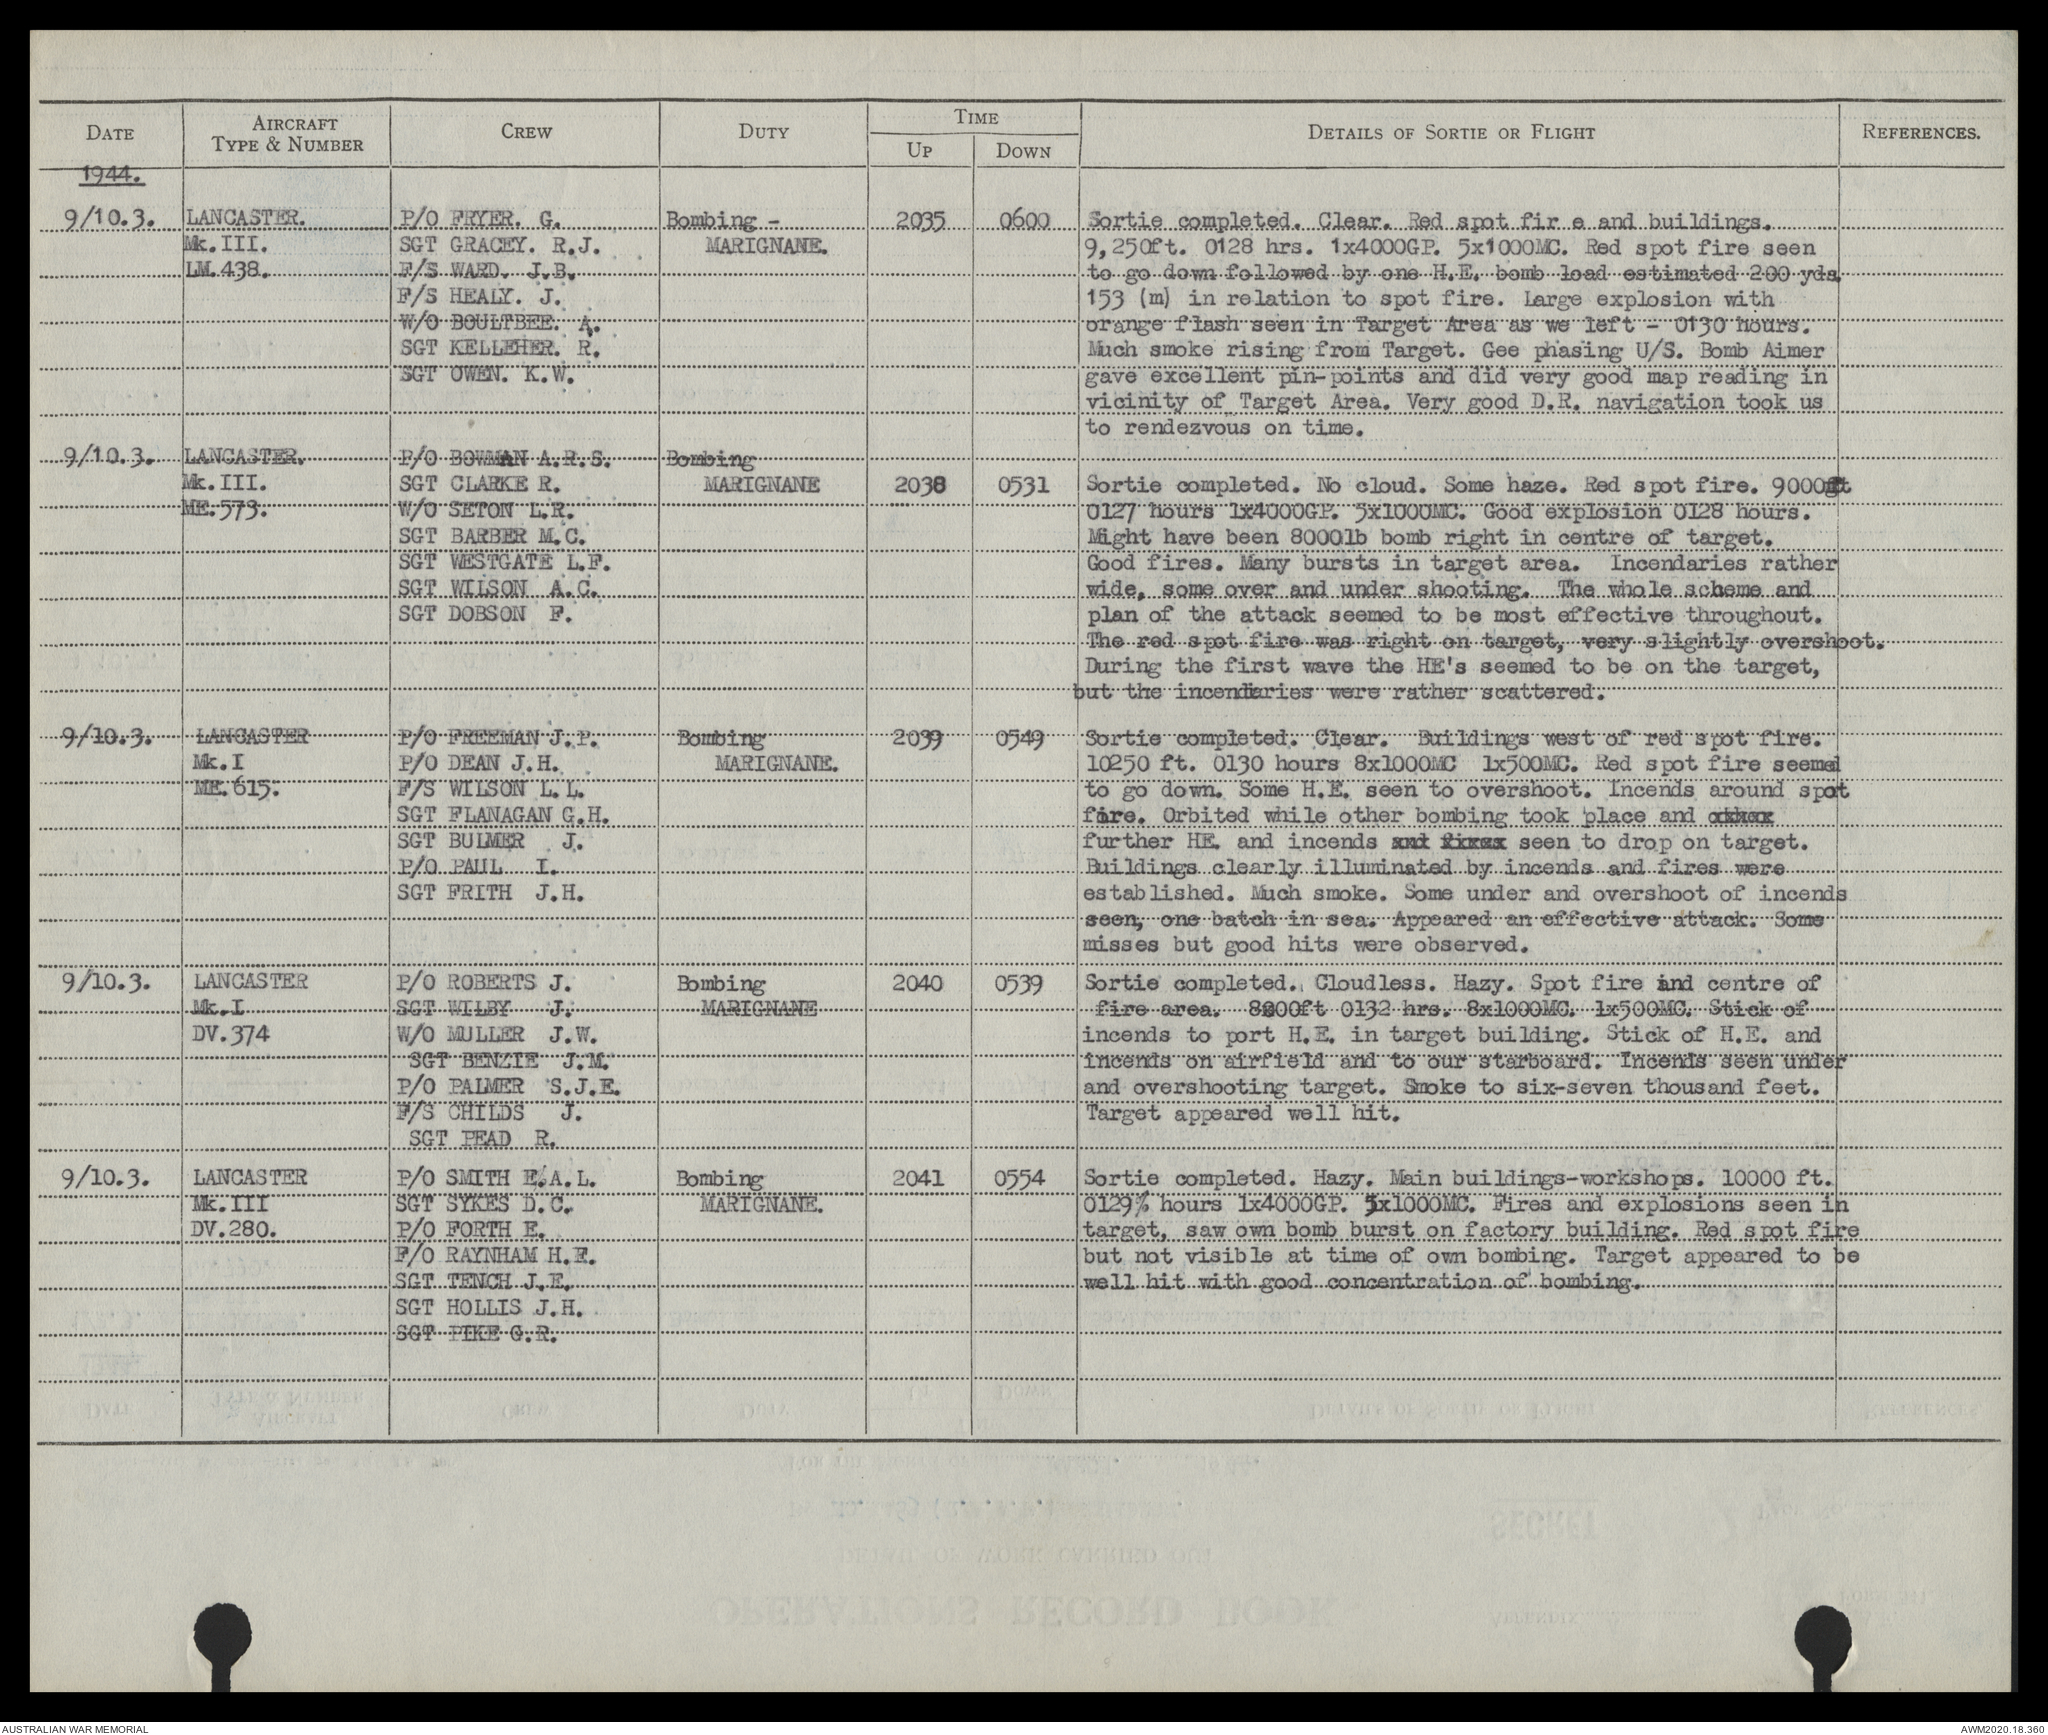 DATE AIRCRAFT TYPE & NUMBER CREW DUTY TIME UP DOWN DETAILS OF SORTIE OR FLIGHT REFERENCES.
1944.
9/10.3. LANCASTER. P/O FRYER. G. Bombing - 2035 0600 Sortie completed. Clear. Red spot fir e and buildings.
Mk.III. SGT GRACEY. R.J. MARIGNANE. 9,250ft. 0128 hrs. 1x4000GP. 5x1000MC. Red spot fire seen
LM.438. F/S WARD. J.B. to go down followed by one H.E. bomb load estimated 200 yds.
F/S HEALY. J. 153 (m) in relation to spot fire. Large explosion with
W/O BOULTBEE. A. orange flash seen in Target Area as we left - 0130 hours.
SGT KELLEHER. R. Much smoke rising from Target. Gee phasing U/S. Bomb Aimer
SGT OWEN. K.W. gave excellent pin-points and did very good map reading in
vicinity of Target Area. Very good D.R. navigation took us
to rendezvous on time.
9/10.3. LANCASTER. P/O BOWMAN A.R.S. Bombing
Mk.III. SGT CLARKE R. MARIGNANE 2038 0531 Sortie completed. No cloud. Some haze. Red spot fire. 9000ft
ME.573. W/O SETON L.R. 0127 hours 1x4000GP. 5x1000MC. Good explosion 0128 hours.
SGT BARBER M.C. Might have been 8000lb bomb right in centre of target.
SGT WESTGATE L.F. Good fires. Many bursts in target area. Incendaries rather
SGT WILSON A.C. wide, some over and under shooting. The whole scheme and
SGT DOBSON F. plan of the attack seemed to be most effective throughout.
The red spot fire was right on target, very slightly overshoot.
During the first wave the HE's seemed to be on the target,
but the incendiaries were rather scattered.
9/10.3. LANCASTER P/O FREEMAN J.P. Bombing 2039 0549 Sortie completed. Clear. Buildings west of red spot fire.
Mk.I P/O DEAN J.H. MARIGNANE. 10250 ft. 0130 hours 8x1000MC 1x500MC. Red spot fire seemed
ME.615. F/S WILSON L.L. to go down. Some H.E. seen to overshoot. Incends around spot
SGT FLANAGAN G.H. fire. Orbited while other bombing took place and
SGT BULMER J. further HE. and incends seen to drop on target.
P/O PAUL I. Buildings clearly illuminated by incends and fires were
SGT FRITH J.H. established. Much smoke. Some under and overshoot of incends
seen, one batch in sea. Appeared an effective attack. Some
misses but good hits were observed.
9/10.3. LANCASTER P/O ROBERTS J. Bombing 2040 0539 Sortie completed. Cloudless. Hazy. Spot fire and centre of
Mk.I SGT WILBY J. MARIGNANE fire area. 8000ft 0132 hrs. 8x1000MC. 1x500MC. Stick of
DV.374 W/O MULLER J.W. incends to port H.E. in target building. Stick of H.E. and
SGT BENZIE J.M. incends on airfield and to our starboard. Incends seen under
P/O PALMER S.J.E. and overshooting target. Smoke to six-seven thousand feet.
F/S CHILDS J. Target appeared well hit.
SGT PEAD R.
9/10.3. LANCASTER P/O SMITH E.A.L. Bombing 2041 0554 Sortie completed. Hazy. Main buildings-workshops. 10000 ft.
Mk.III SGT SYKES D.C. MARIGNANE. 0129½ hours 1x4000GP. 5x1000MC. Fires and explosions seen in
DV.280. P/O FORTH E. target, saw own bomb burst on factory building. Red spot fire
F/O RAYNHAM H.F. but not visible at time of own bombing. Target appeared to be
SGT TENCH J.E. well hit with good concentration of bombing.
SGT HOLLIS J.H.
SGT PIKE G.R.
AUSTRALIAN WAR MEMORIAL AWM2020.18.360